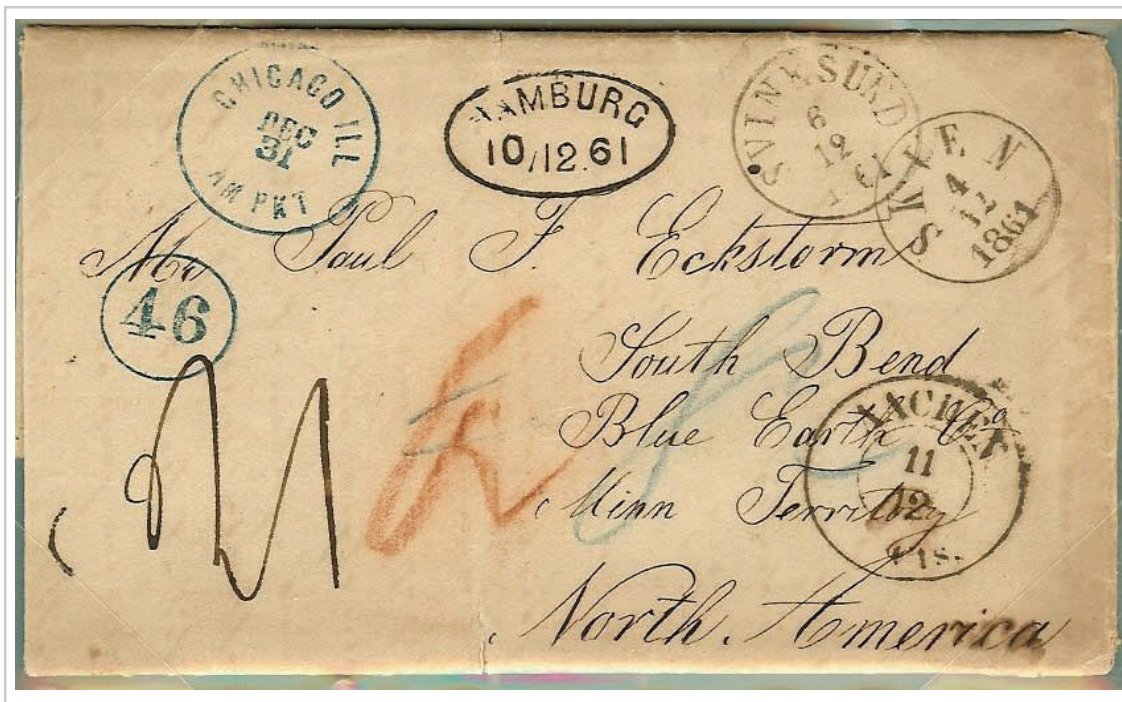 CHICAGO ILL
DEC
31
AM PKT
HAMBURG
10/12.61
SVINESUND
6
12
1861
SKIEN
4
12
1861
Mr Paul F. Eckstorm
46
South Bend
Blue Earth Co
Minn Territory
North America
AACHEN
11
12